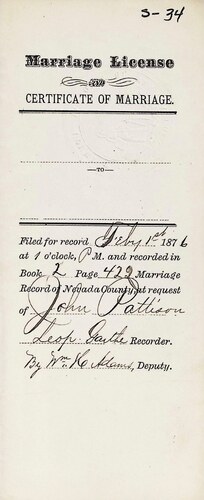 S-34
Marriage License
AND
CERTIFICATE OF MARRIAGE.
TO
Filed for record Feby 1st 1876
at 1 o'clock, P M. and recorded in
Book 2 Page 422 Marriage
Record of Nevada County, at request
of John Pattison
Leop. Garthe Recorder.
By Wm K. Adams, Deputy.